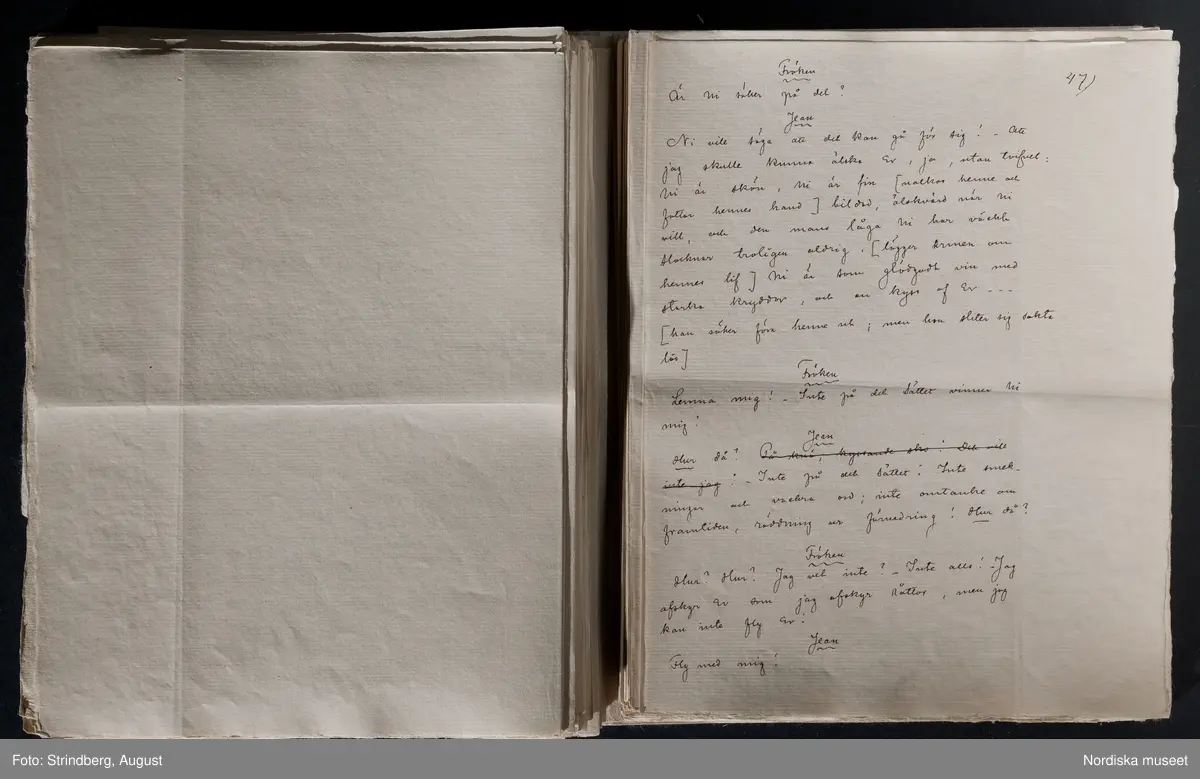 47)
Fröken
Är Ni säker på det?
Jean
Ni vill säga att det kan gå för sig! - Att
jag skulle kunna älska Er, ja, utan tvifvel:
Ni är skön, Ni är fin [nalkas henne och
fattar hennes hand] bildad, älskvärd när Ni
vill, och den mans låga Ni har väckt
slocknar troligen aldrig. [lägger armen om
hennes lif] Ni är som glödgadt vin med
starka kryddor, och en kyss af Er ---
[han söker föra henne ut; men hon sliter sig sakta
lös]
Fröken
Lemna mig! - Inte på det sättet vinner Ni
mig!
Jean
Hur då? På knä, kyssande sko! Det vill
inte jag! - Inte på det sättet! Inte smek-
ningar och vackra ord; inte omtanke om
framtiden, räddning ur förnedring! Hur då?
Fröken
Hur? Hur? Jag vet inte? - Inte alls! - Jag
afskyr Er som jag afskyr råttor, men jag
kan inte fly Er!
Jean
Fly med mig!
Foto: Strindberg, August
Nordiska museet